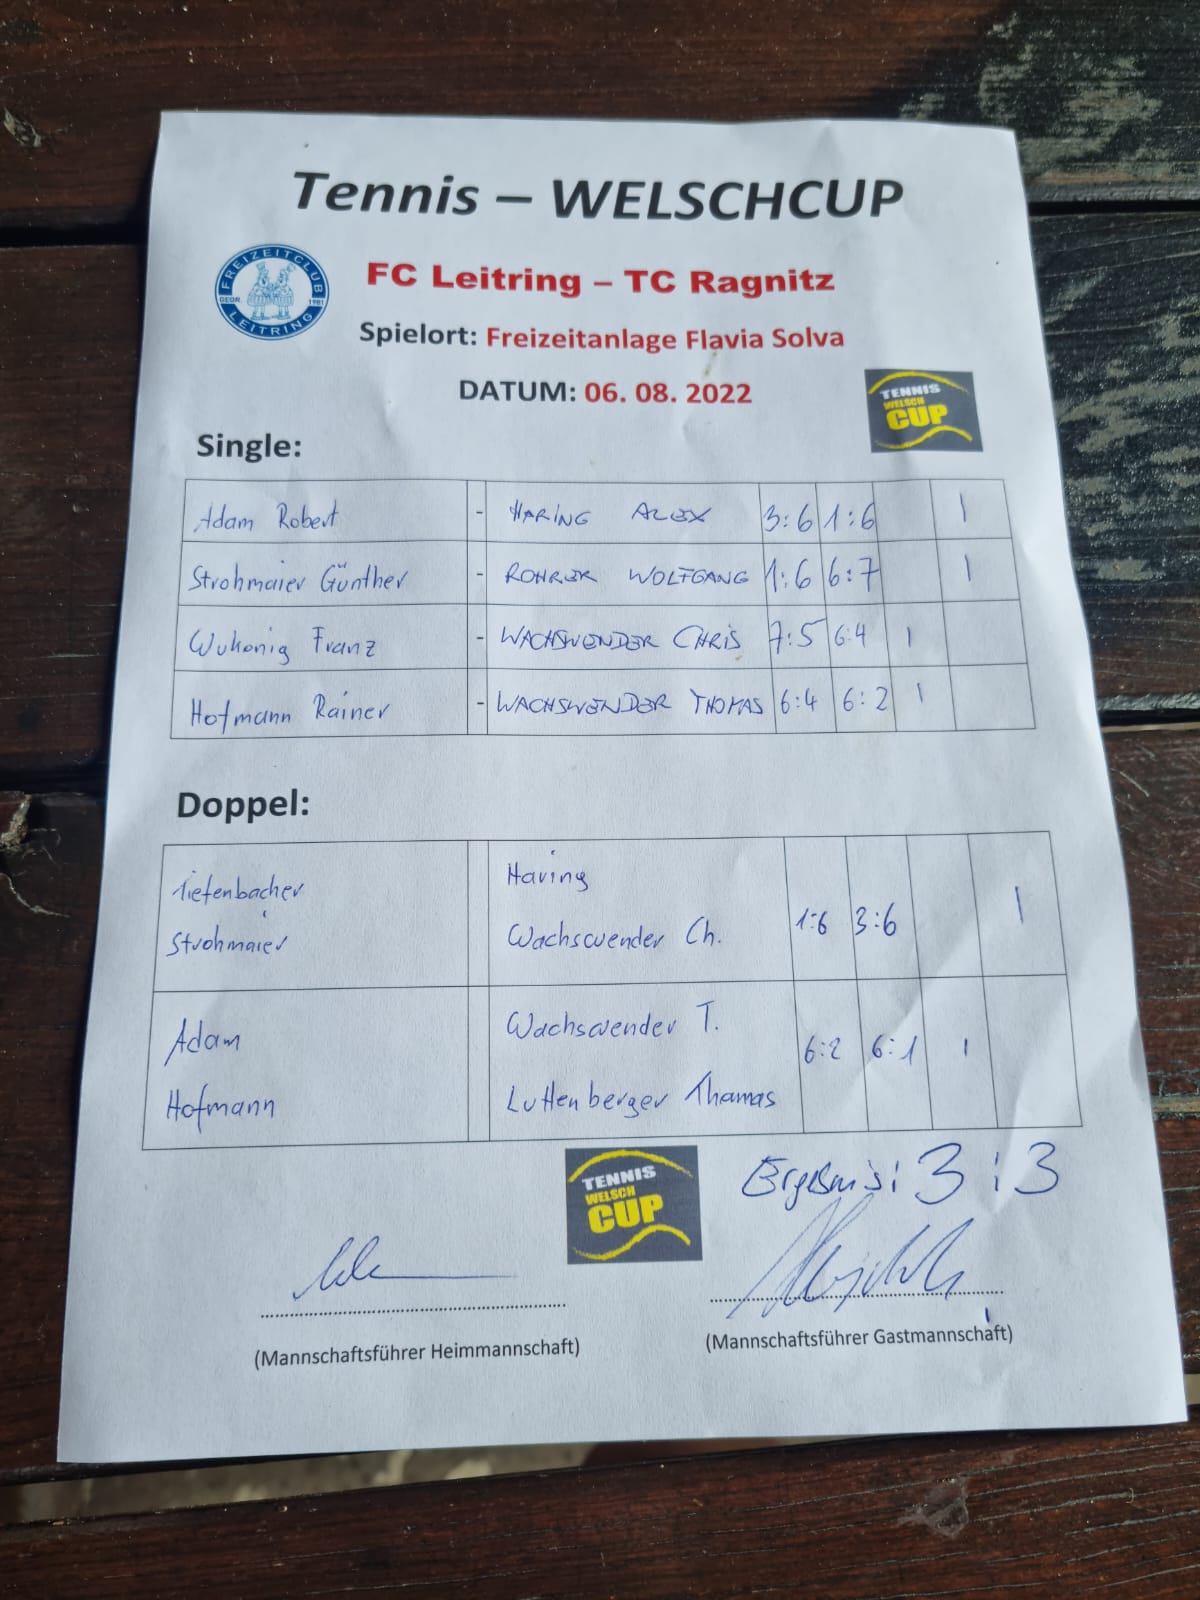 Tennis – WELSCHCUP
FREIZEITCLUB
GEGR. 1981
LEITRING
FC Leitring – TC Ragnitz
Spielort: Freizeitanlage Flavia Solva
DATUM: 06. 08. 2022
TENNIS
WELSCH
CUP
Single:
Adam Robert - HARING ALEX 3:6 1:6 1
Strohmaier Günther - ROHRER WOLFGANG 1:6 6:7 1
Wukonig Franz - WACHSWENDER CHRIS 7:5 6:4 1
Hofmann Rainer - WACHSWENDER THOMAS 6:4 6:2 1
Doppel:
Tiefenbacher Haring
Strohmaier Wachswender Ch. 1:6 3:6 1
Adam Wachswender T. 6:2 6:1 1
Hofmann Luttenberger Thomas
TENNIS
WELSCH
CUP
Ergebnis: 3:3
(Mannschaftsführer Heimmannschaft) (Mannschaftsführer Gastmannschaft)